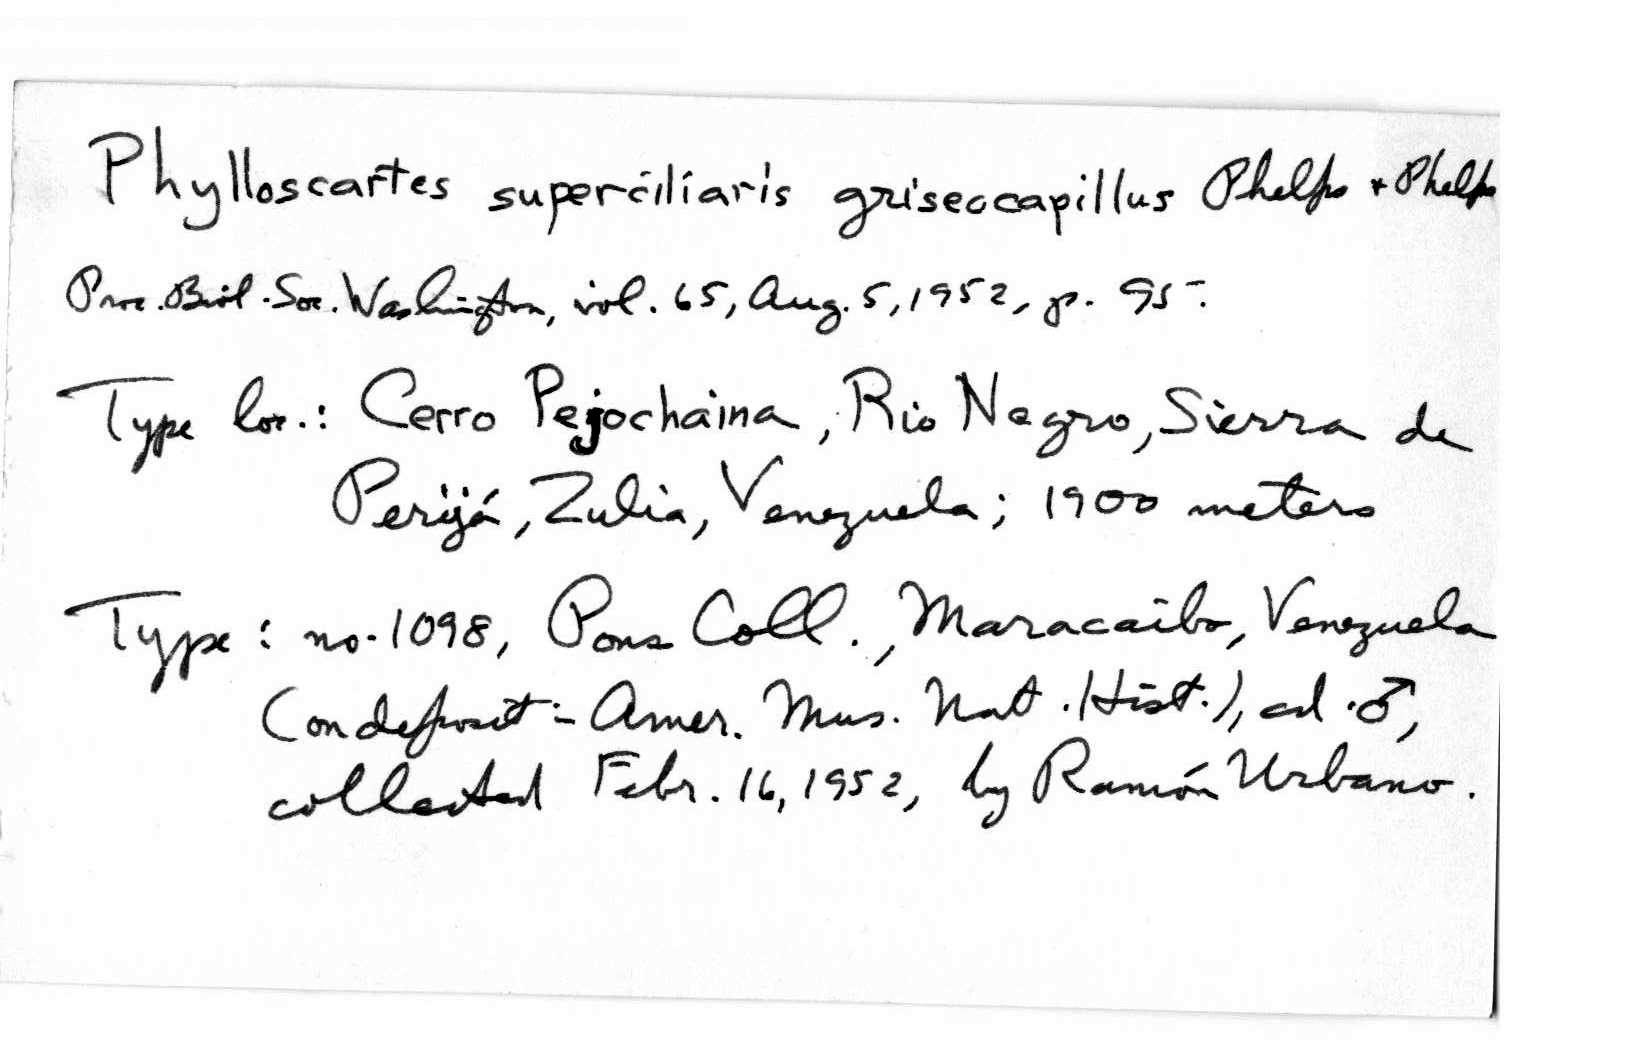 Phylloscartes superciliaris griseocapillus Phelps + Phelps
Proc. Biol. Soc. Washington, vol. 65, Aug. 5, 1952, p. 95.
Type loc.: Cerro Pejochaina, Rio Negro, Sierra de
Perijá, Zulia, Venezuela; 1900 meters
Type: no. 1098, Pons Coll., Maracaibo, Venezuela
(on deposit - Amer. Mus. Nat. Hist.), ad. ♂,
collected Febr. 16, 1952, by Ramón Urbano.